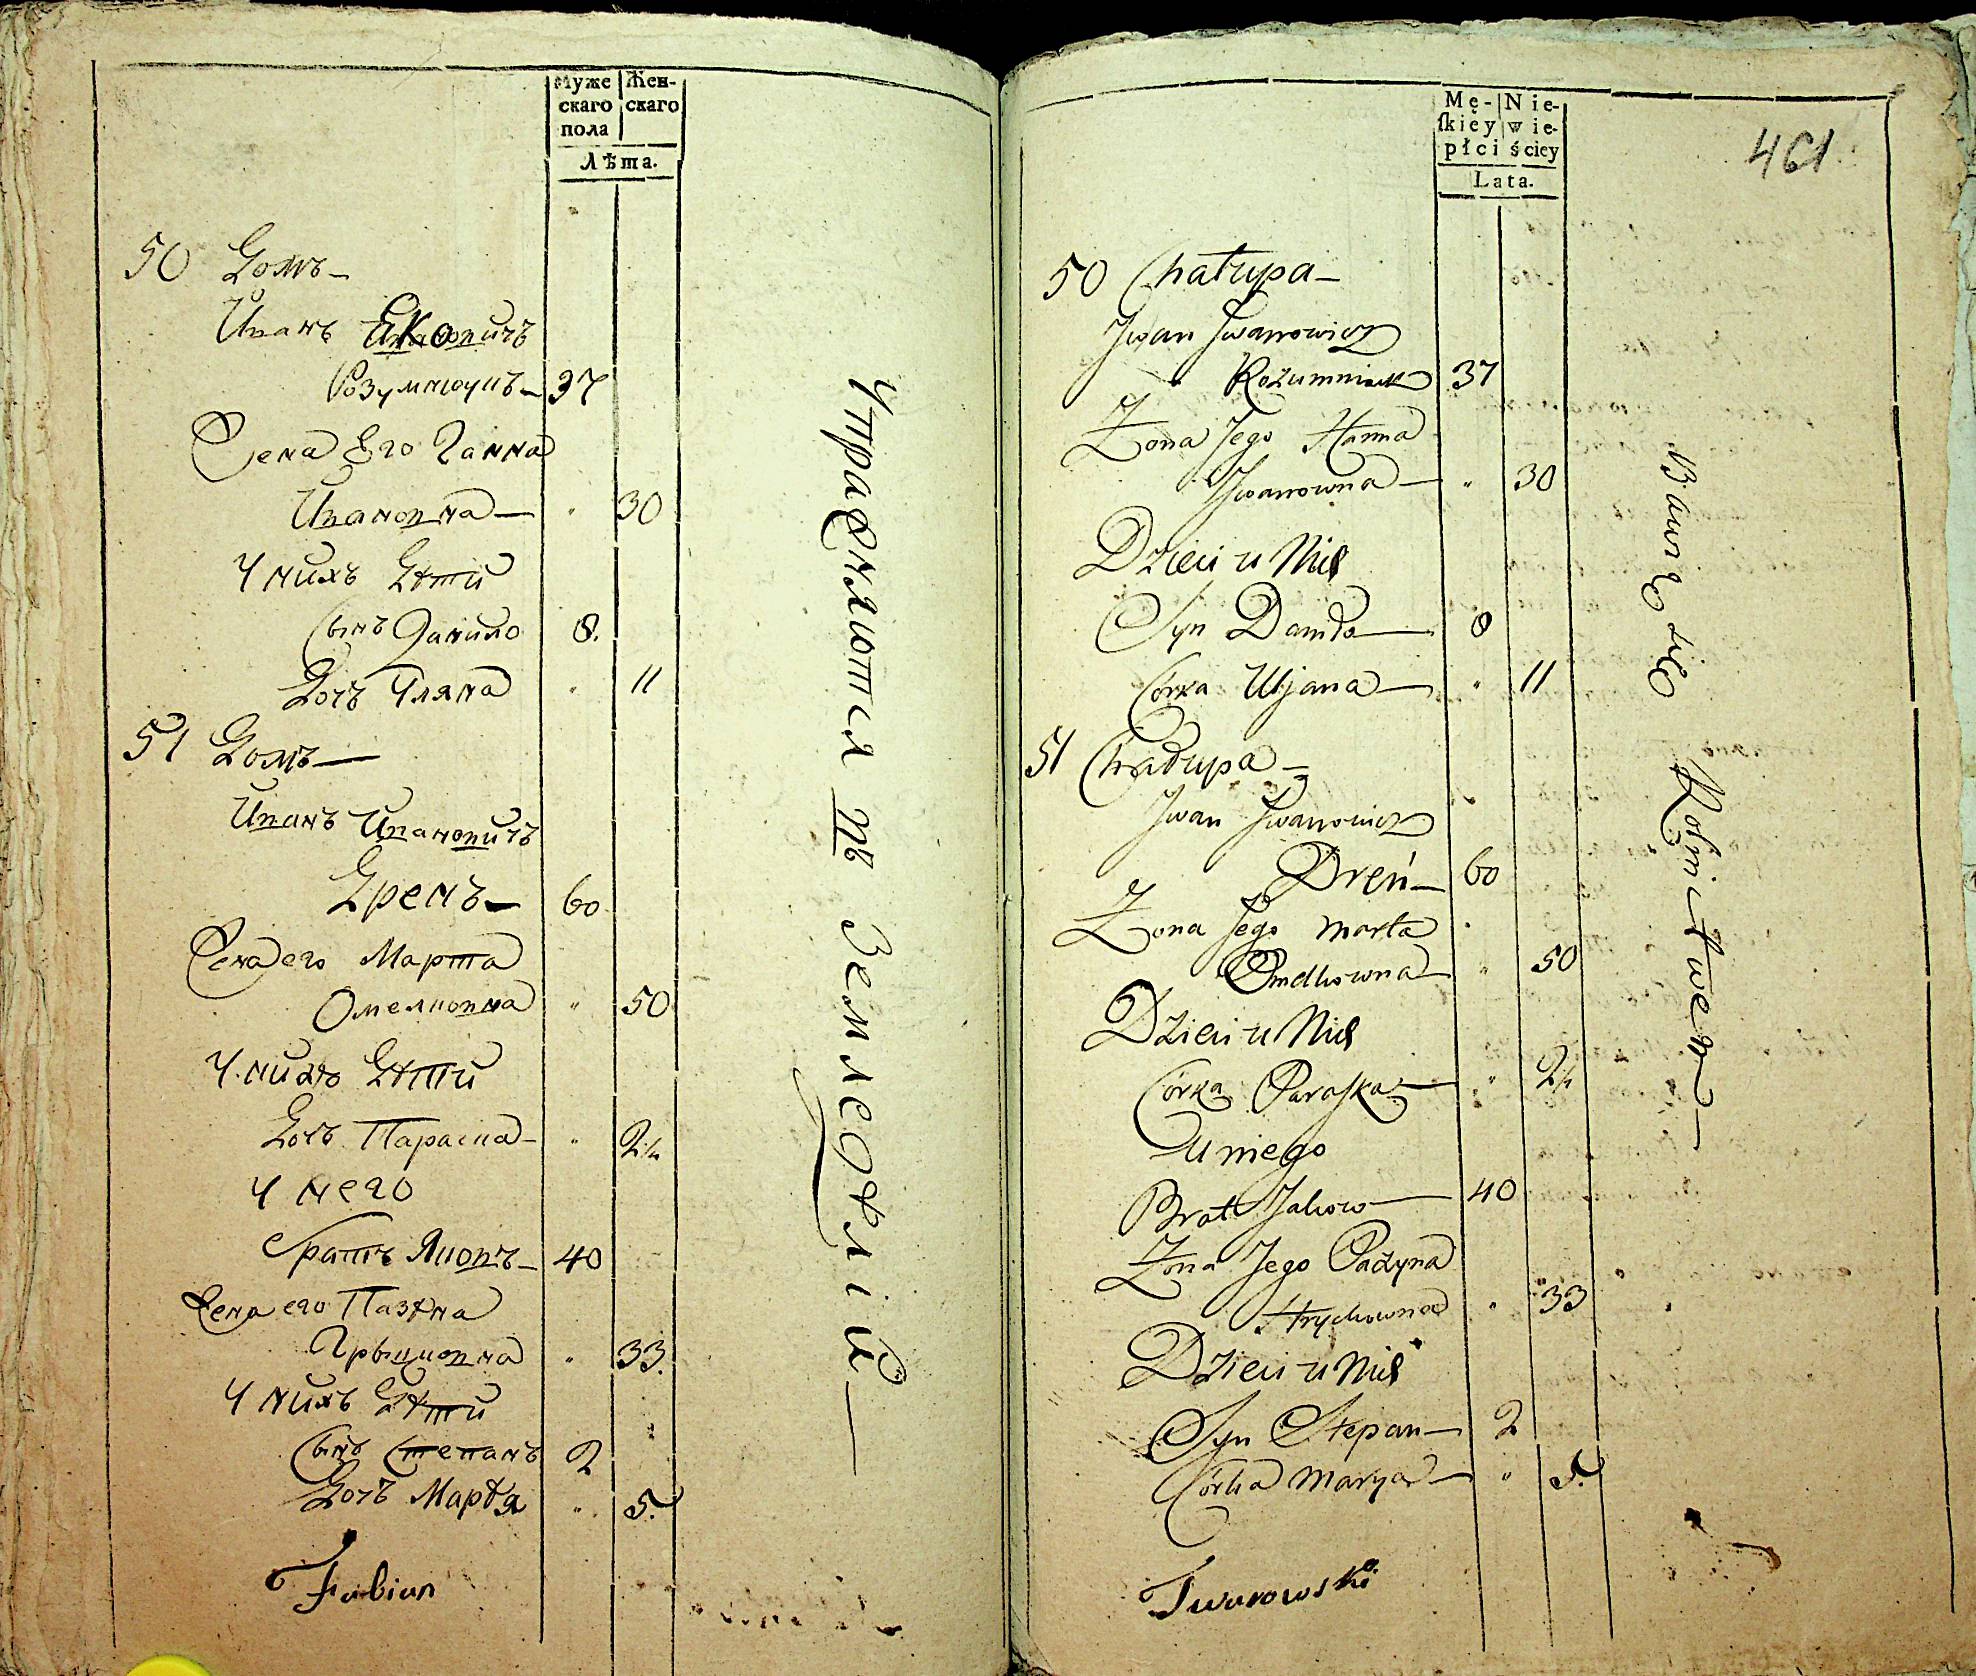 Муже Жен-
скаго скаго
пола
Лѣта.
50 Домъ-
Иванъ Еко вичъ
Розумнюкъ- 37
Жена Его Ганна
Ивановна- " 30
У нихъ Дѣти
Сынъ Данило 8.
Дочъ Уляна " 11
51 Домъ-
Иванъ Ивановичъ
Дренъ- 60
Жена его Марта
Омелковна " 50
У нихъ Дѣти
Дочъ Параска- "
У него
братъ Яковъ- 40
Жена его Пазѣна
Грыцковна " 33.
У нихъ Дѣти
Сынъ Степанъ 2
Дочъ Марѣя " 5.
Fabian
Упражняются въ Земледѣліи-
Mę- Nie-
skiey wie-
płci ściey
Lata.
461
50 Chałupa-
Jwan Jwanowicz
Rozumniuk 37
Zona Jego Hanna
Jwanowna- " 30
Dzieci u Nich
Syn Daniło- 8
Córka Uljana- " 11
51 Chałupa-
Jwan Jwanowicz
Dreń- 60
Zona Jego Marta
Omelkowna " 50
Dzieci u Nich
Córka Paraska- "
U niego
Brat Jakow- 40
Zona Jego Pazyna
Hryckowna " 33
Dzieci u Nich
Syn Stepan- 2
Córka Marya- " 5.
Tworowski
Bawią się Rolnictwem-